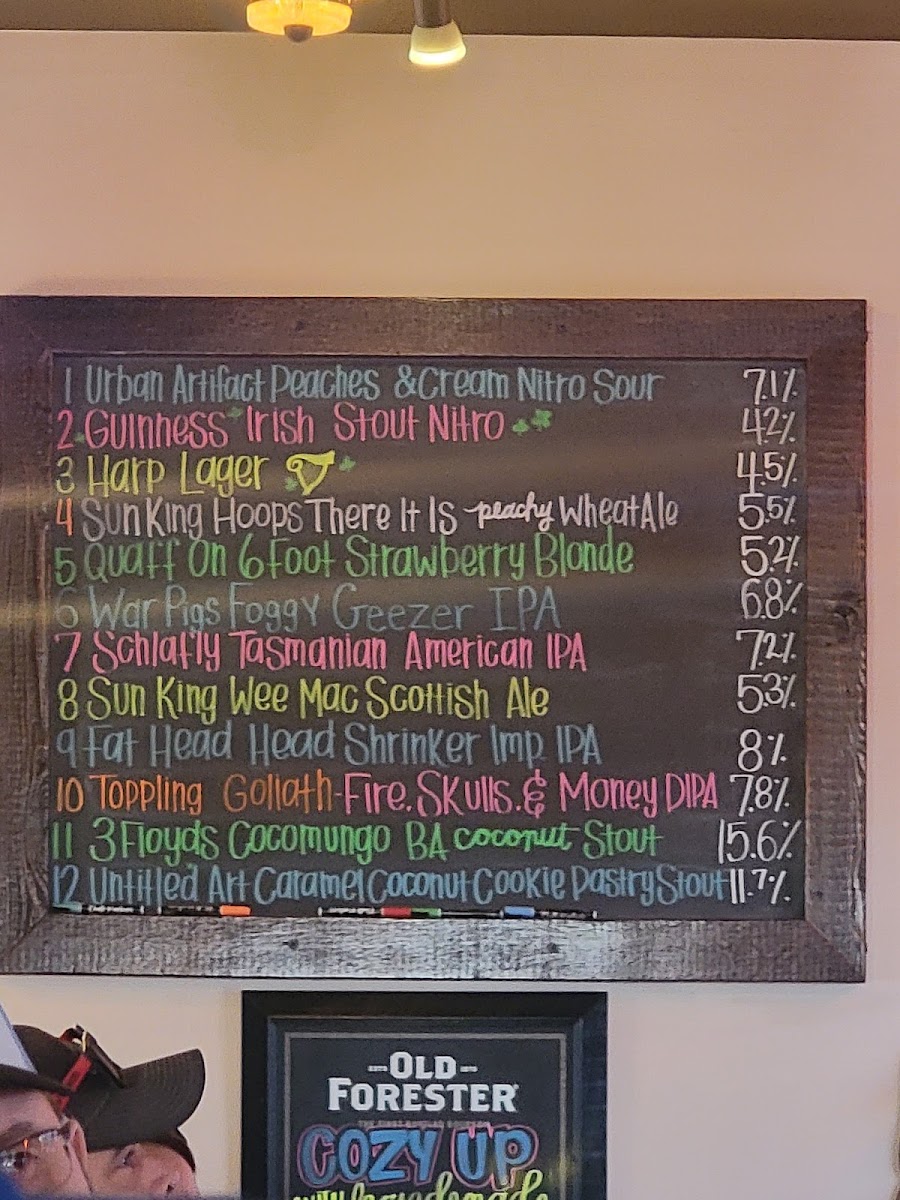 1 Urban Artifact Peaches & Cream Nitro Sour 7.1%
2 Guinness Irish Stout Nitro 4.2%
3 Harp Lager 4.5%
4 Sun King Hoops There It Is peachy Wheat Ale 5.5%
5 Quaff On 6 Foot Strawberry Blonde 5.2%
6 War Pigs Foggy Geezer IPA 6.8%
7 Schlafly Tasmanian American IPA 7.2%
8 Sun King Wee Mac Scottish Ale 5.3%
9 Fat Head Head Shrinker Imp. IPA 8%
10 Toppling Goliath-Fire, Skulls, & Money DIPA 7.8%
11 3 Floyds Cocomungo BA coconut Stout 15.6%
12 Untitled Art Caramel Coconut Cookie Pastry Stout 11.7%
OLD
FORESTER
COZY UP
with handmade